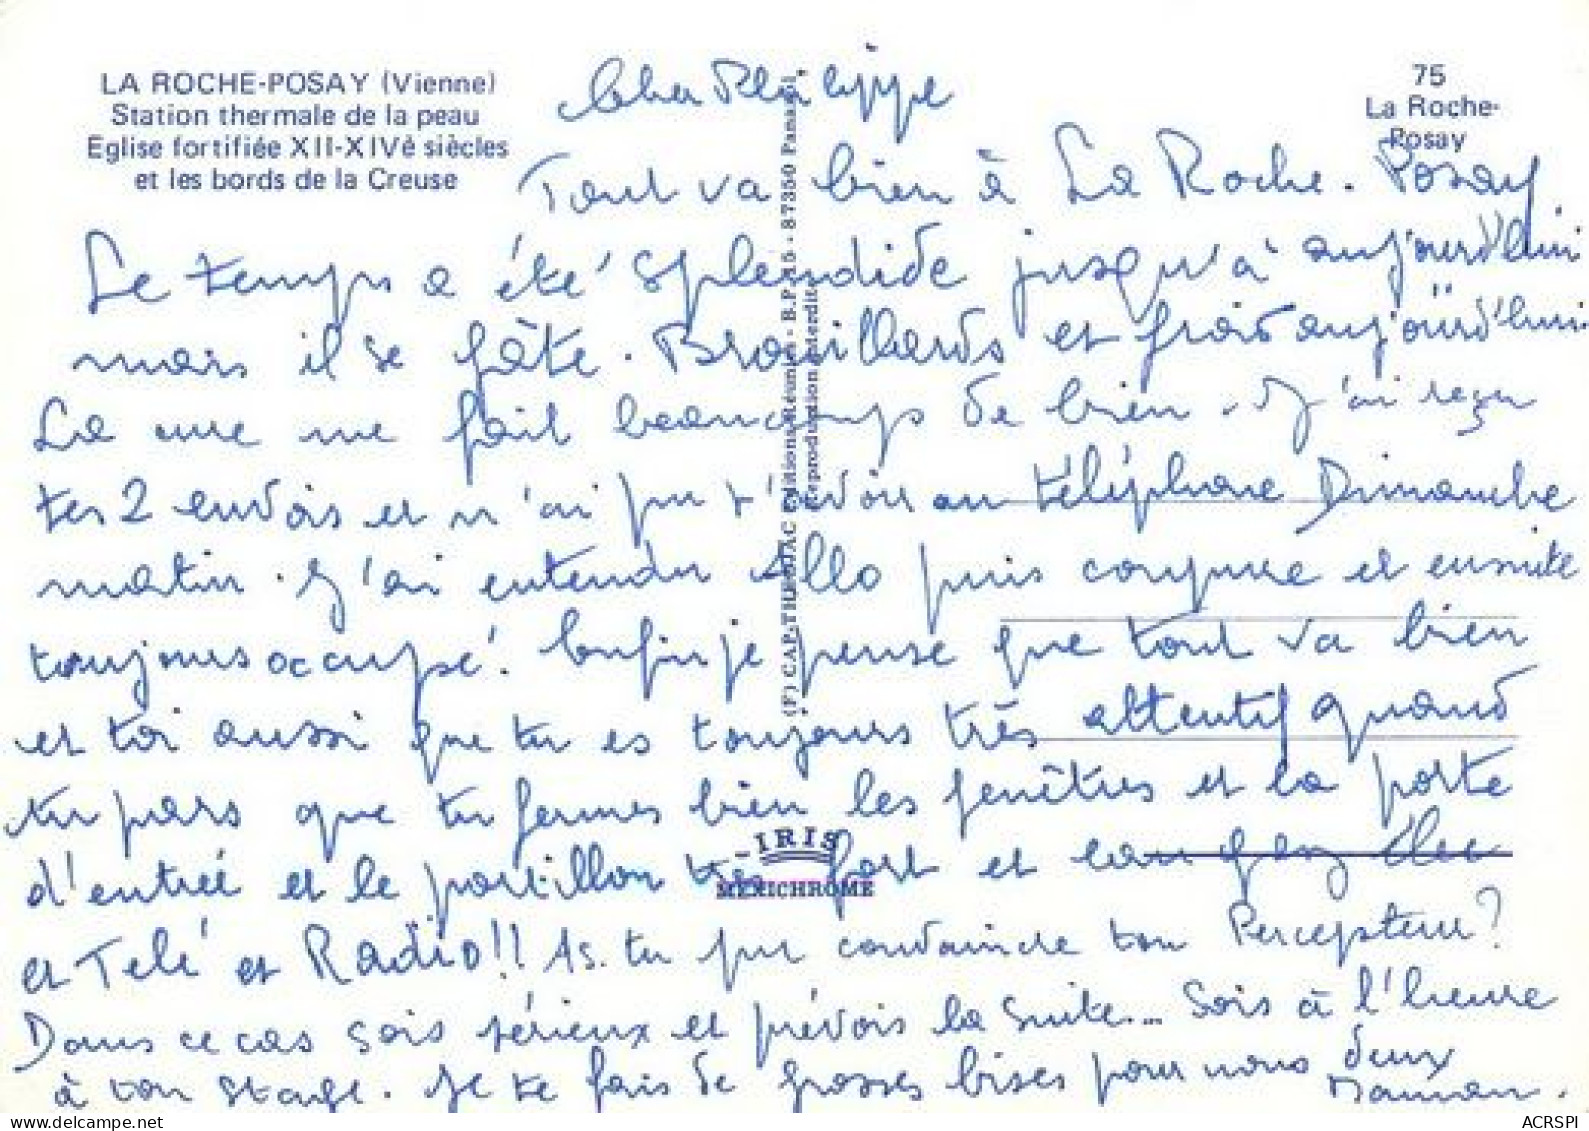 LA ROCHE-POSAY (Vienne)
Station thermale de la peau
Eglise fortifiée XII-XIVè siècles
et les bords de la Creuse
75
La Roche-
Posay
Cher Philippe
Tout va bien à La Roche-Posay
Le temps a été splendide jusqu'à aujourd'hui
mais il se gâte. Brouillards et froid aujourd'hui
La cure me fait beaucoup de bien. J'ai reçu
tes 2 envois et n'ai pu t'avoir au téléphone Dimanche
matin. J'ai entendu Allo puis coupure et ensuite
toujours occupé. Enfin je pense que tout va bien
et toi aussi que tu es toujours très attentif quand
tu pars que tu fermes bien les fenêtres et la porte
d'entrée et le portillon très fort et gaz élec
et Télé et Radio!! As-tu pu convaincre ton Percepteur?
Dans ce cas sois sérieux et prévois la suite... Sois à l'heure
à ton stage. Je te fais de grosses bises pour nous deux
Maman.
(F) CAP-THEOJAC Editions Réunies - B.P. 15 - 87350 Panazol
Reproduction interdite
IRIS
MEXICHROME
ACRSPI